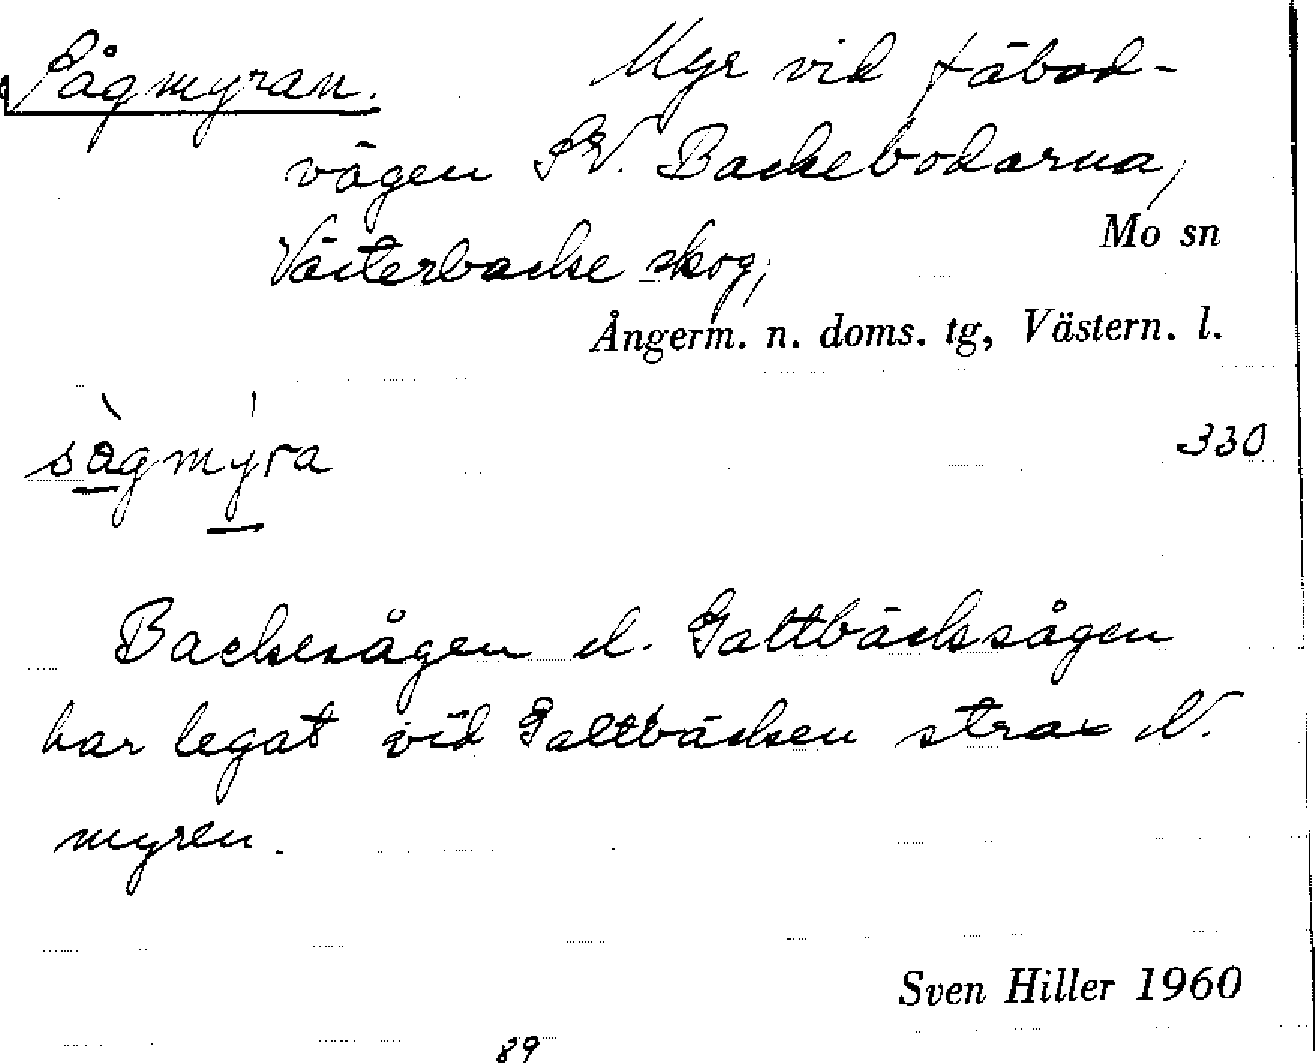 Sågmyran. Myr vid fäbod-
vägen SV. Backebodarna,
Mo sn
Västerbacke skog,
Ångerm. n. doms. tg, Västern. l.
sågmýra 330
Backesågen el. Galtbäcksågen
har legat vid Galtbäcken strax N.
myren.
Sven Hiller 1960
89